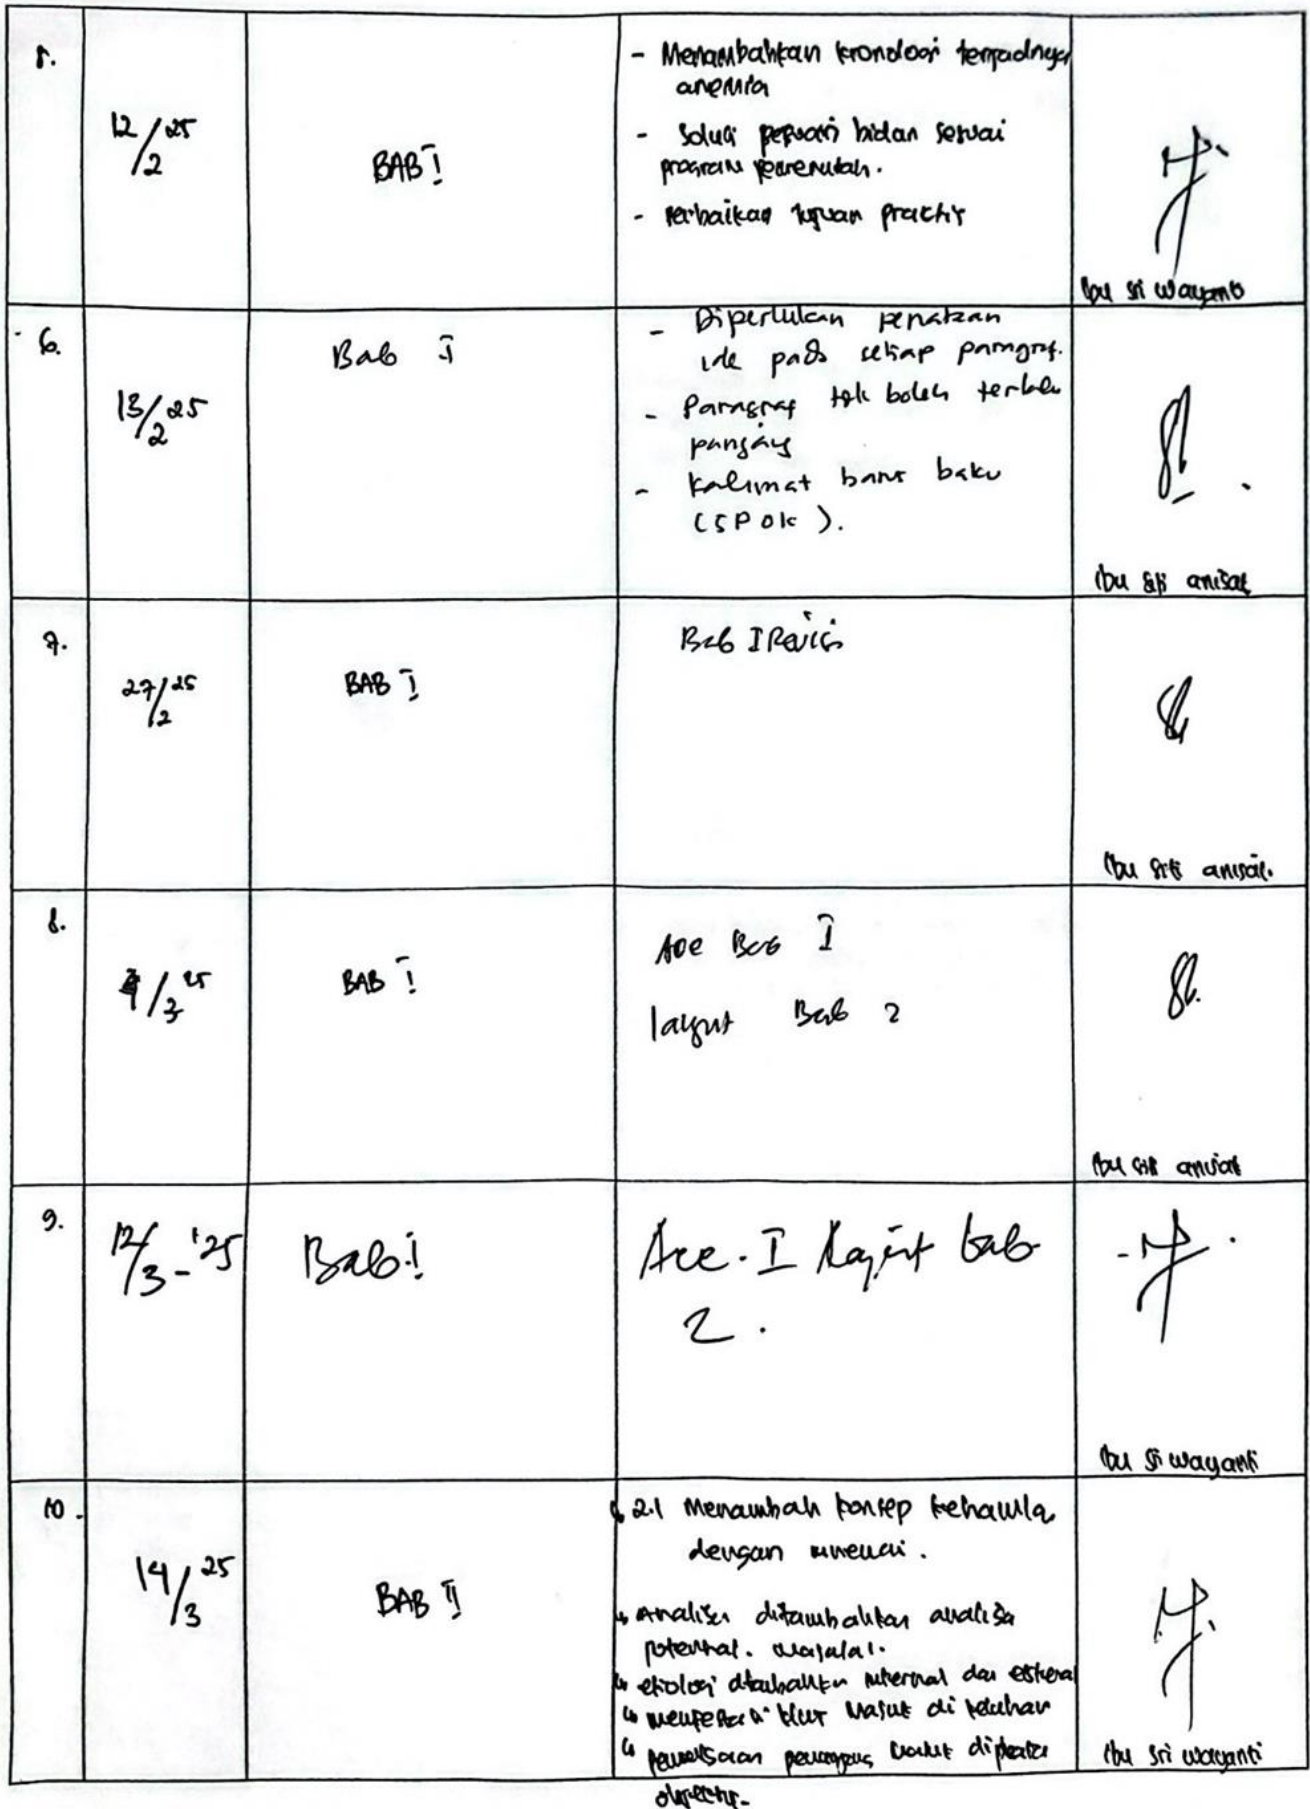 5.
12/2 25
BAB I
- Menambahkan kronologi terjadinya
anemia
- Solusi bidan sesuai
program pemerintah.
- Perbaikan tujuan praktis
Ibu Sri Wayanti
6.
13/2 25
Bab I
- Diperlukan penataan
ide pada setiap paragraf.
- Paragraf tdk boleh terlalu
panjang
- Kalimat harus baku
(SPOK).
Ibu Siti anisah
7.
27/2 25
BAB I
Bab I Revisi
Ibu Siti anisah.
8.
/3 25
BAB I
Acc Bab I
lanjut Bab 2
Ibu Siti anisah
9.
12/3-'25
Bab I
Acc. I lanjut bab
2.
Ibu Sri wayanti
10.
14/3 25
BAB II
2.1 Menambah konsep kehamilan
dengan anemia.
Analisa ditambahkan analisa
potensial. masalah.
etiologi ditambahkan internal dan eksternal
masuk di keluhan
pemeriksaan penunjang masuk di
objektif.
Ibu Sri wayanti